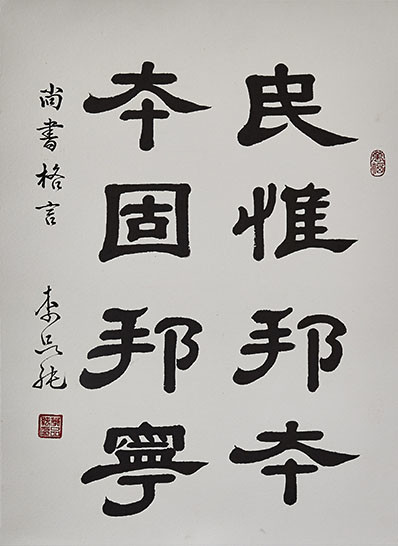 民惟邦本
本固邦寧
尚書格言